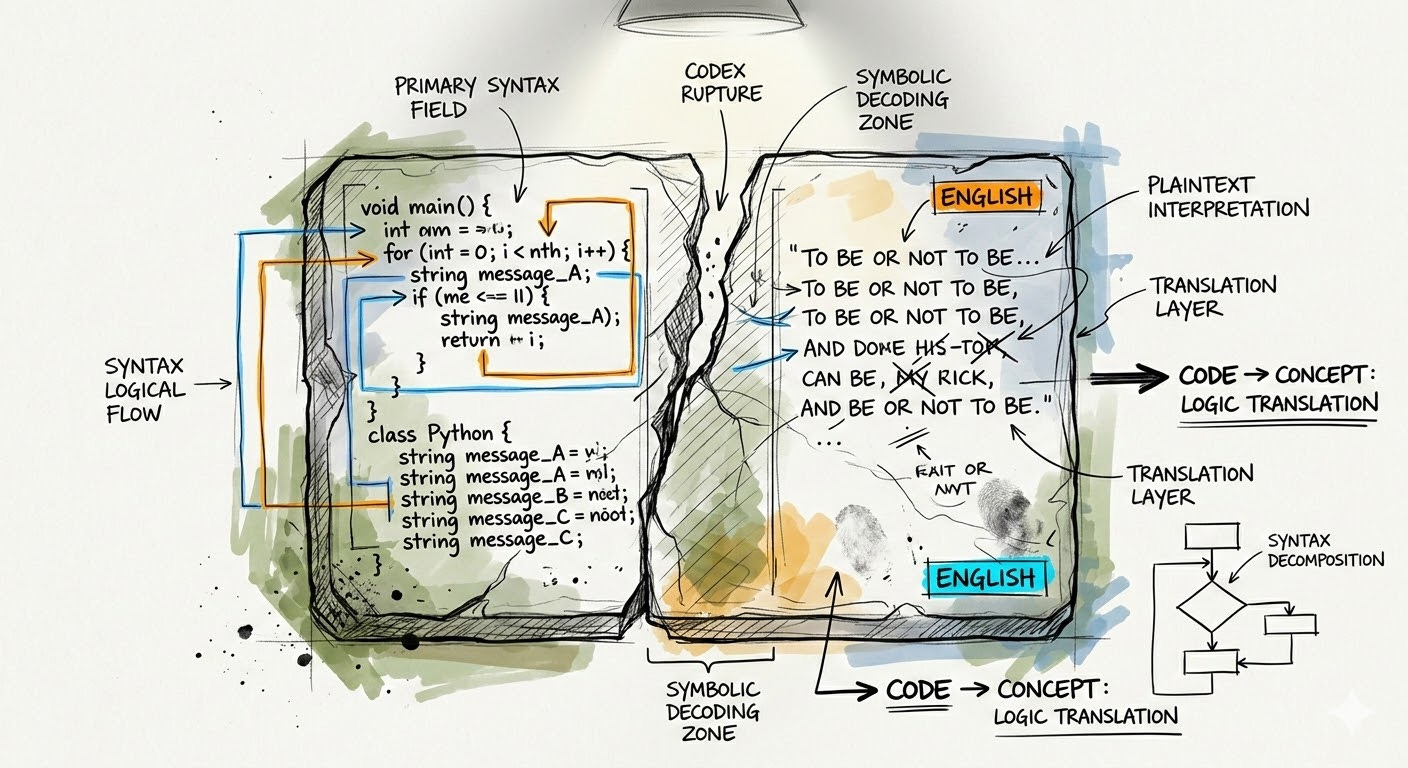 PRIMARY SYNTAX
FIELD
CODEX
RUPTURE
SYMBOLIC
DECODING
ZONE
void main() {
int am =
for (int = 0; i < nth; i++) {
string message_A;
if (me <== 11) {
string message_A);
return i;
}
}
}
class Python {
string message_A =
string message_A =
string message_B = noet;
string message_C = noot;
string message_C;
}
SYNTAX
LOGICAL
FLOW
ENGLISH
"TO BE OR NOT TO BE...
TO BE OR NOT TO BE,
TO BE OR NOT TO BE,
AND DONE HIS-TOR,
CAN BE, MY RICK,
AND BE OR NOT TO BE."
...
OR
ENGLISH
PLAINTEXT
INTERPRETATION
TRANSLATION
LAYER
CODE → CONCEPT:
LOGIC TRANSLATION
TRANSLATION
LAYER
SYNTAX
DECOMPOSITION
SYMBOLIC
DECODING
ZONE
CODE → CONCEPT:
LOGIC TRANSLATION